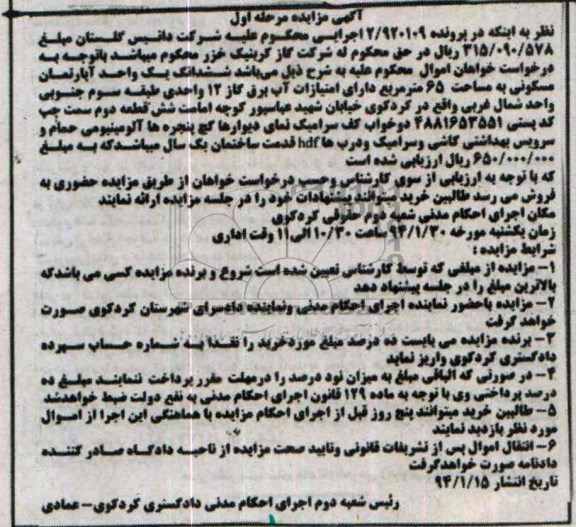 آگهی مزایده مرحله اول
نظر به اینکه در پرونده ۲/۹۲۰۱۰۹ اجرایی محکوم علیه شرکت دانیس گلستان مبلغ
۳۱۵/۰۹۰/۵۷۸ ریال در حق محکوم له شرکت گاز کربنیک خزر محکوم میباشد باتوجه به
درخواست خواهان اموال محکوم علیه به شرح ذیل می‌باشد ششدانگ یک واحد آپارتمان
مسکونی به مساحت ۶۵ مترمربع دارای امتیازات آب برق گاز ۱۲ واحدی طبقه سوم جنوبی
واحد شمال غربی واقع در کردکوی خیابان شهید عباسپور کوچه امامت شش قطعه دوم سمت چپ
کد پستی ۴۸۸۱۶۵۳۵۵۱ دوخواب کف سرامیک نمای دیوارها گچ پنجره ها آلومینیومی حمام و
سرویس بهداشتی کاشی وسرامیک ودرب ها hdf قدمت ساختمان یک سال میباشدکه به مبلغ
۶۵۰/۰۰۰/۰۰۰ ریال ارزیابی شده است
که با توجه به ارزیابی از سوی کارشناس وحسب درخواست خواهان از طریق مزایده حضوری به
فروش می رسد طالبین خرید میتوانند پیشنهادات خود را در جلسه مزایده ارائه نمایند
مکان اجرای احکام مدنی شعبه دوم حقوقی کردکوی
زمان یکشنبه مورخه ۹۴/۱/۳۰ ساعت ۱۰/۳۰ الی ۱۱ وقت اداری
شرایط مزایده :
۱- مزایده از مبلغی که توسط کارشناس تعیین شده است شروع و برنده مزایده کسی می باشدکه
بالاترین مبلغ را در جلسه پیشنهاد دهد
۲- مزایده باحضور نماینده اجرای احکام مدنی ونماینده دادسرای شهرستان کردکوی صورت
خواهد گرفت
۳- برنده مزایده می بایست ده درصد مبلغ موردخرید را نقدا به شماره حساب سپرده
دادگستری کردکوی واریز نماید
۴- در صورتی که الباقی مبلغ به میزان نود درصد را درمهلت مقرر پرداخت ننمایند مبلغ ده
درصد پرداختی وی با توجه به ماده ۱۲۹ قانون اجرای احکام مدنی به نفع دولت ضبط خواهدشد
۵- طالبین خرید میتوانند پنج روز قبل از اجرای احکام مزایده با هماهنگی این اجرا از اموال
مورد نظر بازدید نمایند
۶- انتقال اموال پس از تشریفات قانونی وتایید صحت مزایده از ناحیه دادگاه صادر کننده
دادنامه صورت خواهدگرفت
تاریخ انتشار ۹۴/۱/۱۵
رئیس شعبه دوم اجرای احکام مدنی دادگستری کردکوی - عمادی